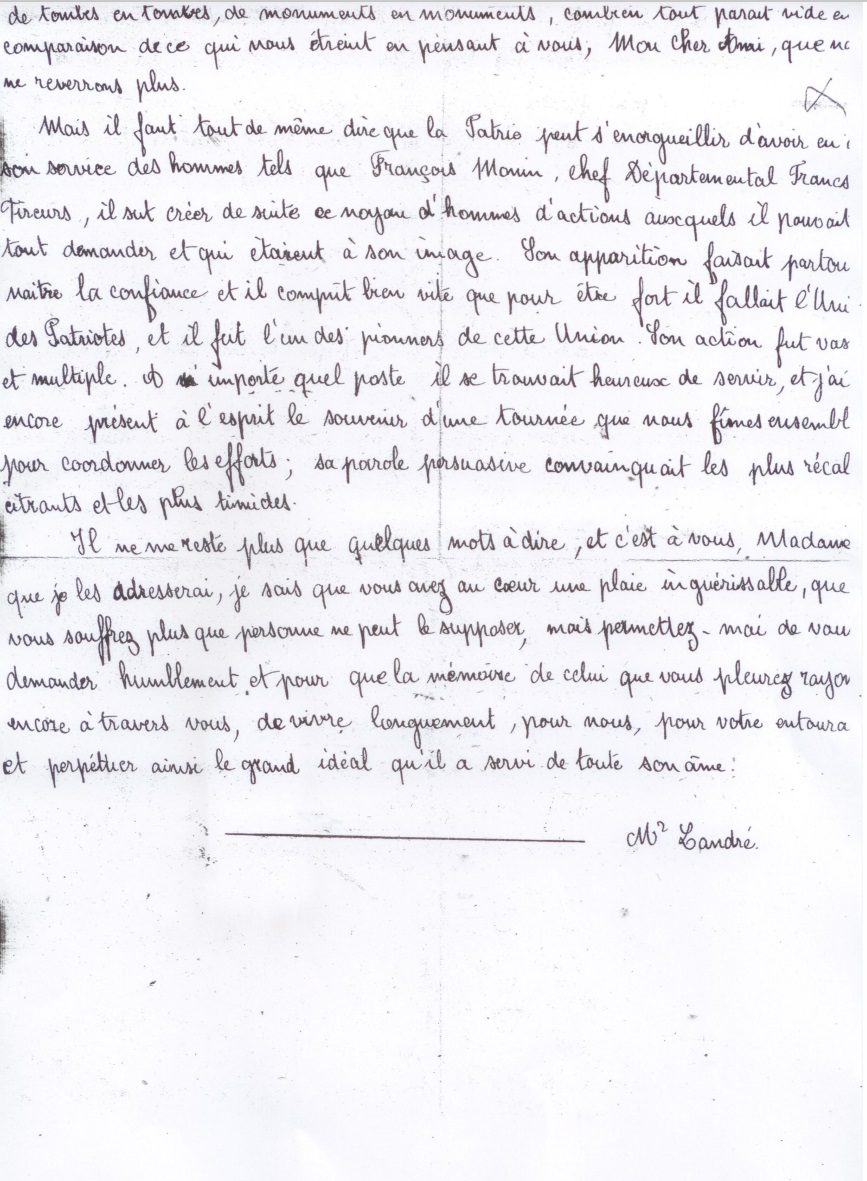 de tombes en tombes, de monuments en monuments, combien tout parait vide e
comparaison de ce qui nous étreint en pensant à vous, Mon cher Ami, que no
ne reverrons plus.
Mais il faut tout de même dire que la Patrie peut s'enorgueillir d'avoir eu
son service des hommes tels que François Monin, chef Départemental Francs
Tireurs, il sut créer de suite ce noyau d'hommes d'actions auxcquels il pouvait
tout demander et qui étaient à son image. Son apparition faisait partou
naitre la confiance et il comprit bien vite que pour être fort il fallait l'Uni
des Patriotes, et il fut l'un des pionners de cette Union. Son action fut vas
et multiple. A n'importe quel poste il se trouvait heureux de servir, et j'ai
encore présent à l'esprit le souvenir d'une tournée que nous fîmes ensembl
pour coordonner les efforts; sa parole persuasive convainquait les plus récal
citrants et les plus timides.
Il ne me reste plus que quelques mots à dire, et c'est à vous, Madame
que je les adresserai, je sais que vous avez au cœur une plaie inguérissable, que
vous souffrez plus que personne ne peut le supposer, mais permettez-moi de vou
demander humblement et pour que la mémoire de celui que vous pleurez rayon
encore à travers vous, de vivre longuement, pour nous, pour votre entoura
et perpétuer ainsi le grand idéal qu'il a servi de toute son âme!
Mr Landré.